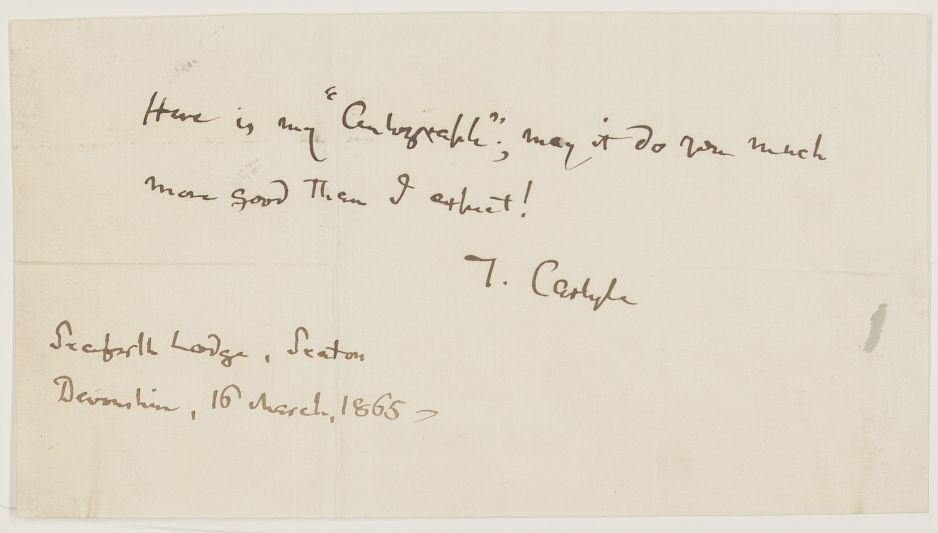 Here is my "Autograph"; may it do you much
more good than I expect!
T. Carlyle
Seaforth Lodge, Seaton
Devonshire, 16 March, 1865 –